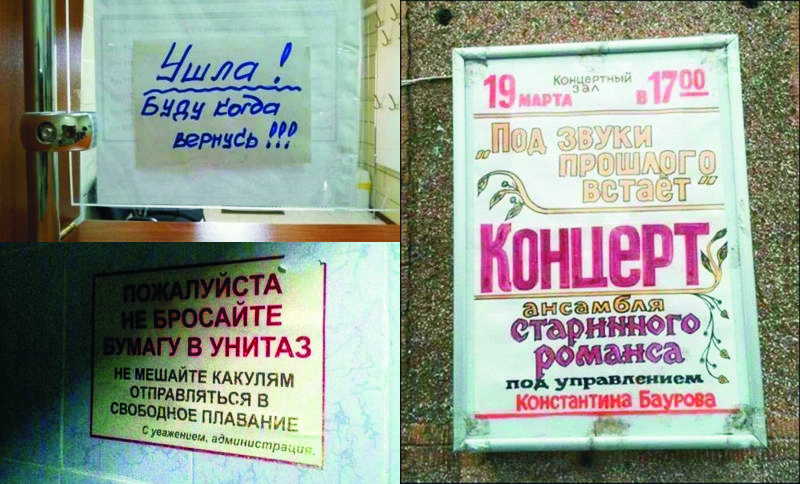 Ушла!
Буду когда
вернусь!!!
ПОЖАЛУЙСТА
НЕ БРОСАЙТЕ
БУМАГУ В УНИТАЗ
НЕ МЕШАЙТЕ КАКУЛЯМ
ОТПРАВЛЯТЬСЯ В
СВОБОДНОЕ ПЛАВАНИЕ
С уважением, администрация.
19 МАРТА Концертный зал в 17 00
„Под звуки
прошлого
встаёт"
Концерт
ансамбля
старинного
романса
под управлением
Константина Баурова